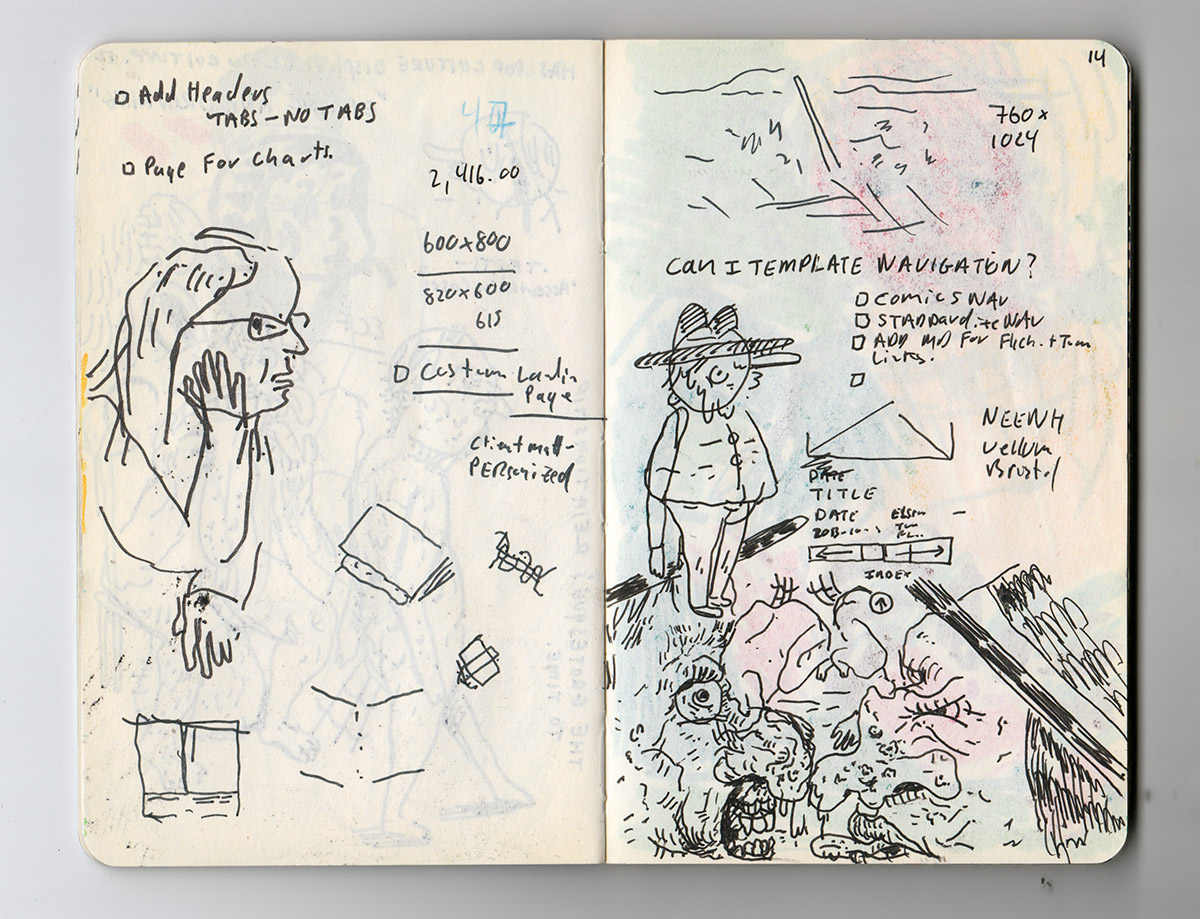 Add Headers
TABS - NO TABS
Page For Charts.
47
2,416.00
600x800
820x600
615
Custom Landin
Page
Client
PERSonized
14
760x
1024
CAN I TEMPLATE NAVIGATION?
Comics NAV
STANDardize NAV
ADD For + Team
Lives.
NEENH
Vellum
Bristol
DATE
TITLE
DATE
INDEX